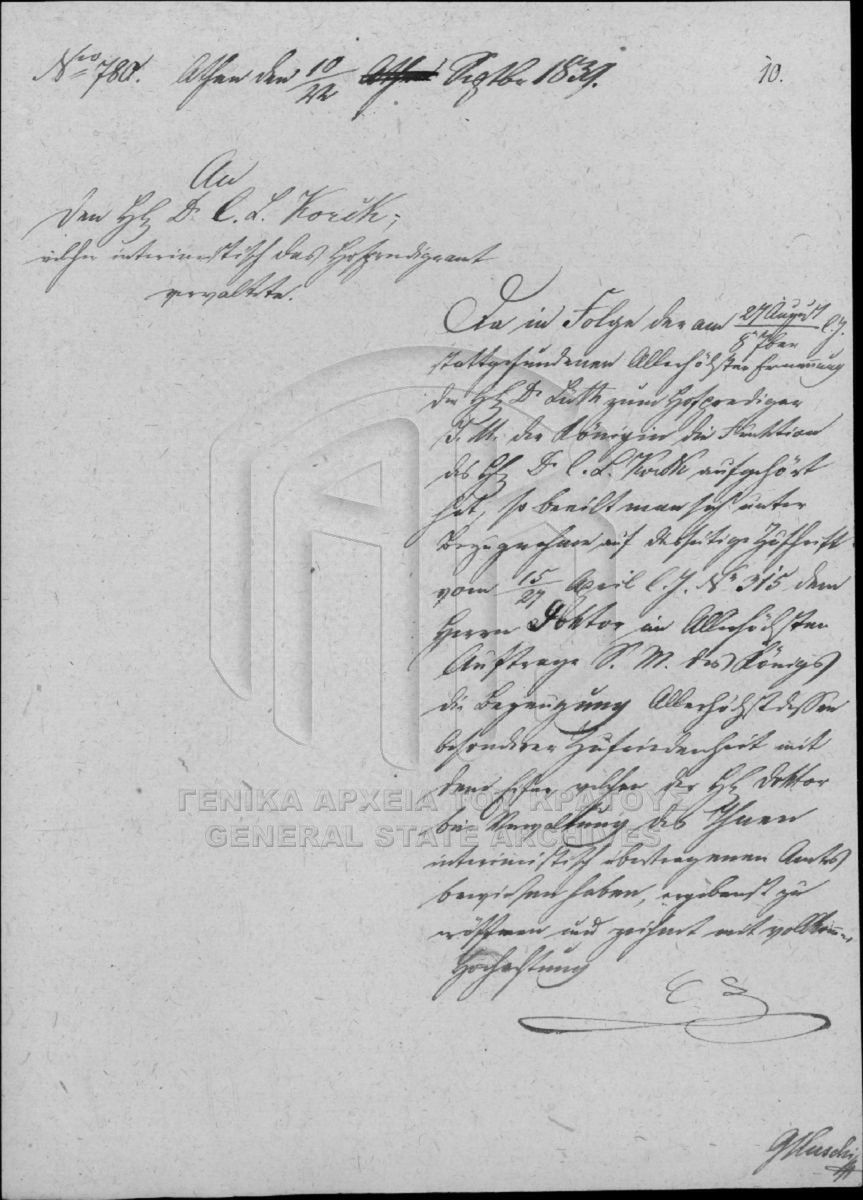 Nro 780. Athen den 10/22 Septbr 1839.
10.
An
den H. Dr. C. L. Korck,
welcher interimistisch das Hofpredigeramt
verwaltete.
Da in Folge der am 27 August/8 7ber l. J.
stattgefundenen Allerhöchsten Ernennung
des H. Dr. Lüth zum Hofprediger
I. M. der Königin die Funktion
des H. Dr. C. L. Korck aufgehört
hat, so beeilt man sich unter
Bezugnahme auf diesseitige Zuschrift
vom 15/27 April l. J. Nr. 315 dem
Herrn Doktor im Allerhöchsten
Auftrage S. M. des Königs
die Bezeugung Allerhöchstdessen
besonderer Zufriedenheit mit
dem Eifer welchen der H. Doktor
bei Verwaltung des Ihnen
interimistisch übertragenen Amtes
bewiesen haben, ergebenst zu
eröffnen und zeichnet mit vollkomm.
Hochachtung
ΓΕΝΙΚΑ ΑΡΧΕΙΑ ΤΟΥ ΚΡΑΤΟΥΣ
GENERAL STATE ARCHIVES